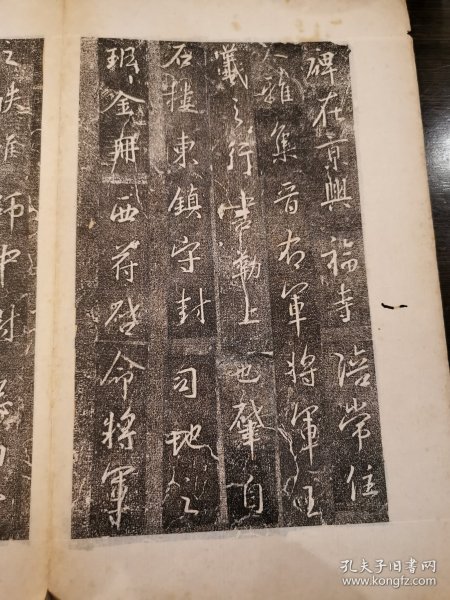 碑在京興福寺陪常住
大雅集晋右軍将軍王
羲之行書勒上也肇自
石楼東鎮守封司地之
班金冊西符啓命将軍
师中封
孔夫子旧书网
www.kongfz.com